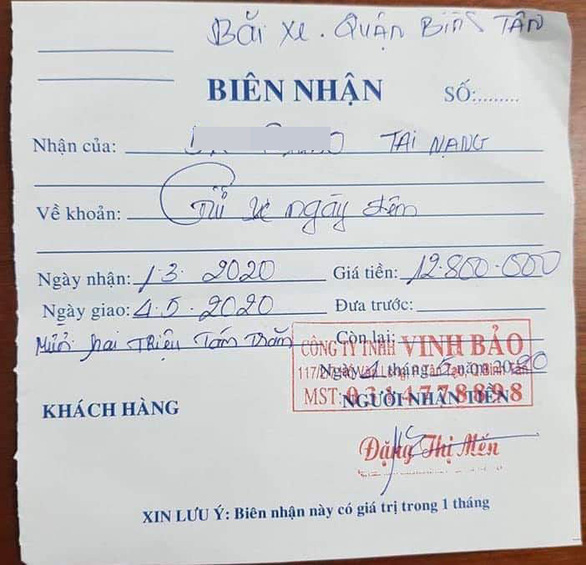 Bãi xe. Quận Bình Tân
BIÊN NHẬN SỐ:........
Nhận của: TAI NẠNG
Về khoản: Gửi xe ngày đêm
Ngày nhận: 1.3.2020 Giá tiền: 12.800.000
Ngày giao: 4.5.2020 Đưa trước:
Mười hai Triệu Tám Trăm Còn lại:
CÔNG TY TNHH VINH BẢO
Ngày tháng 5 năm 2020
MST: 0314778898
KHÁCH HÀNG NGƯỜI NHẬN TIỀN
Đặng Thị Mến
XIN LƯU Ý: Biên nhận này có giá trị trong 1 tháng